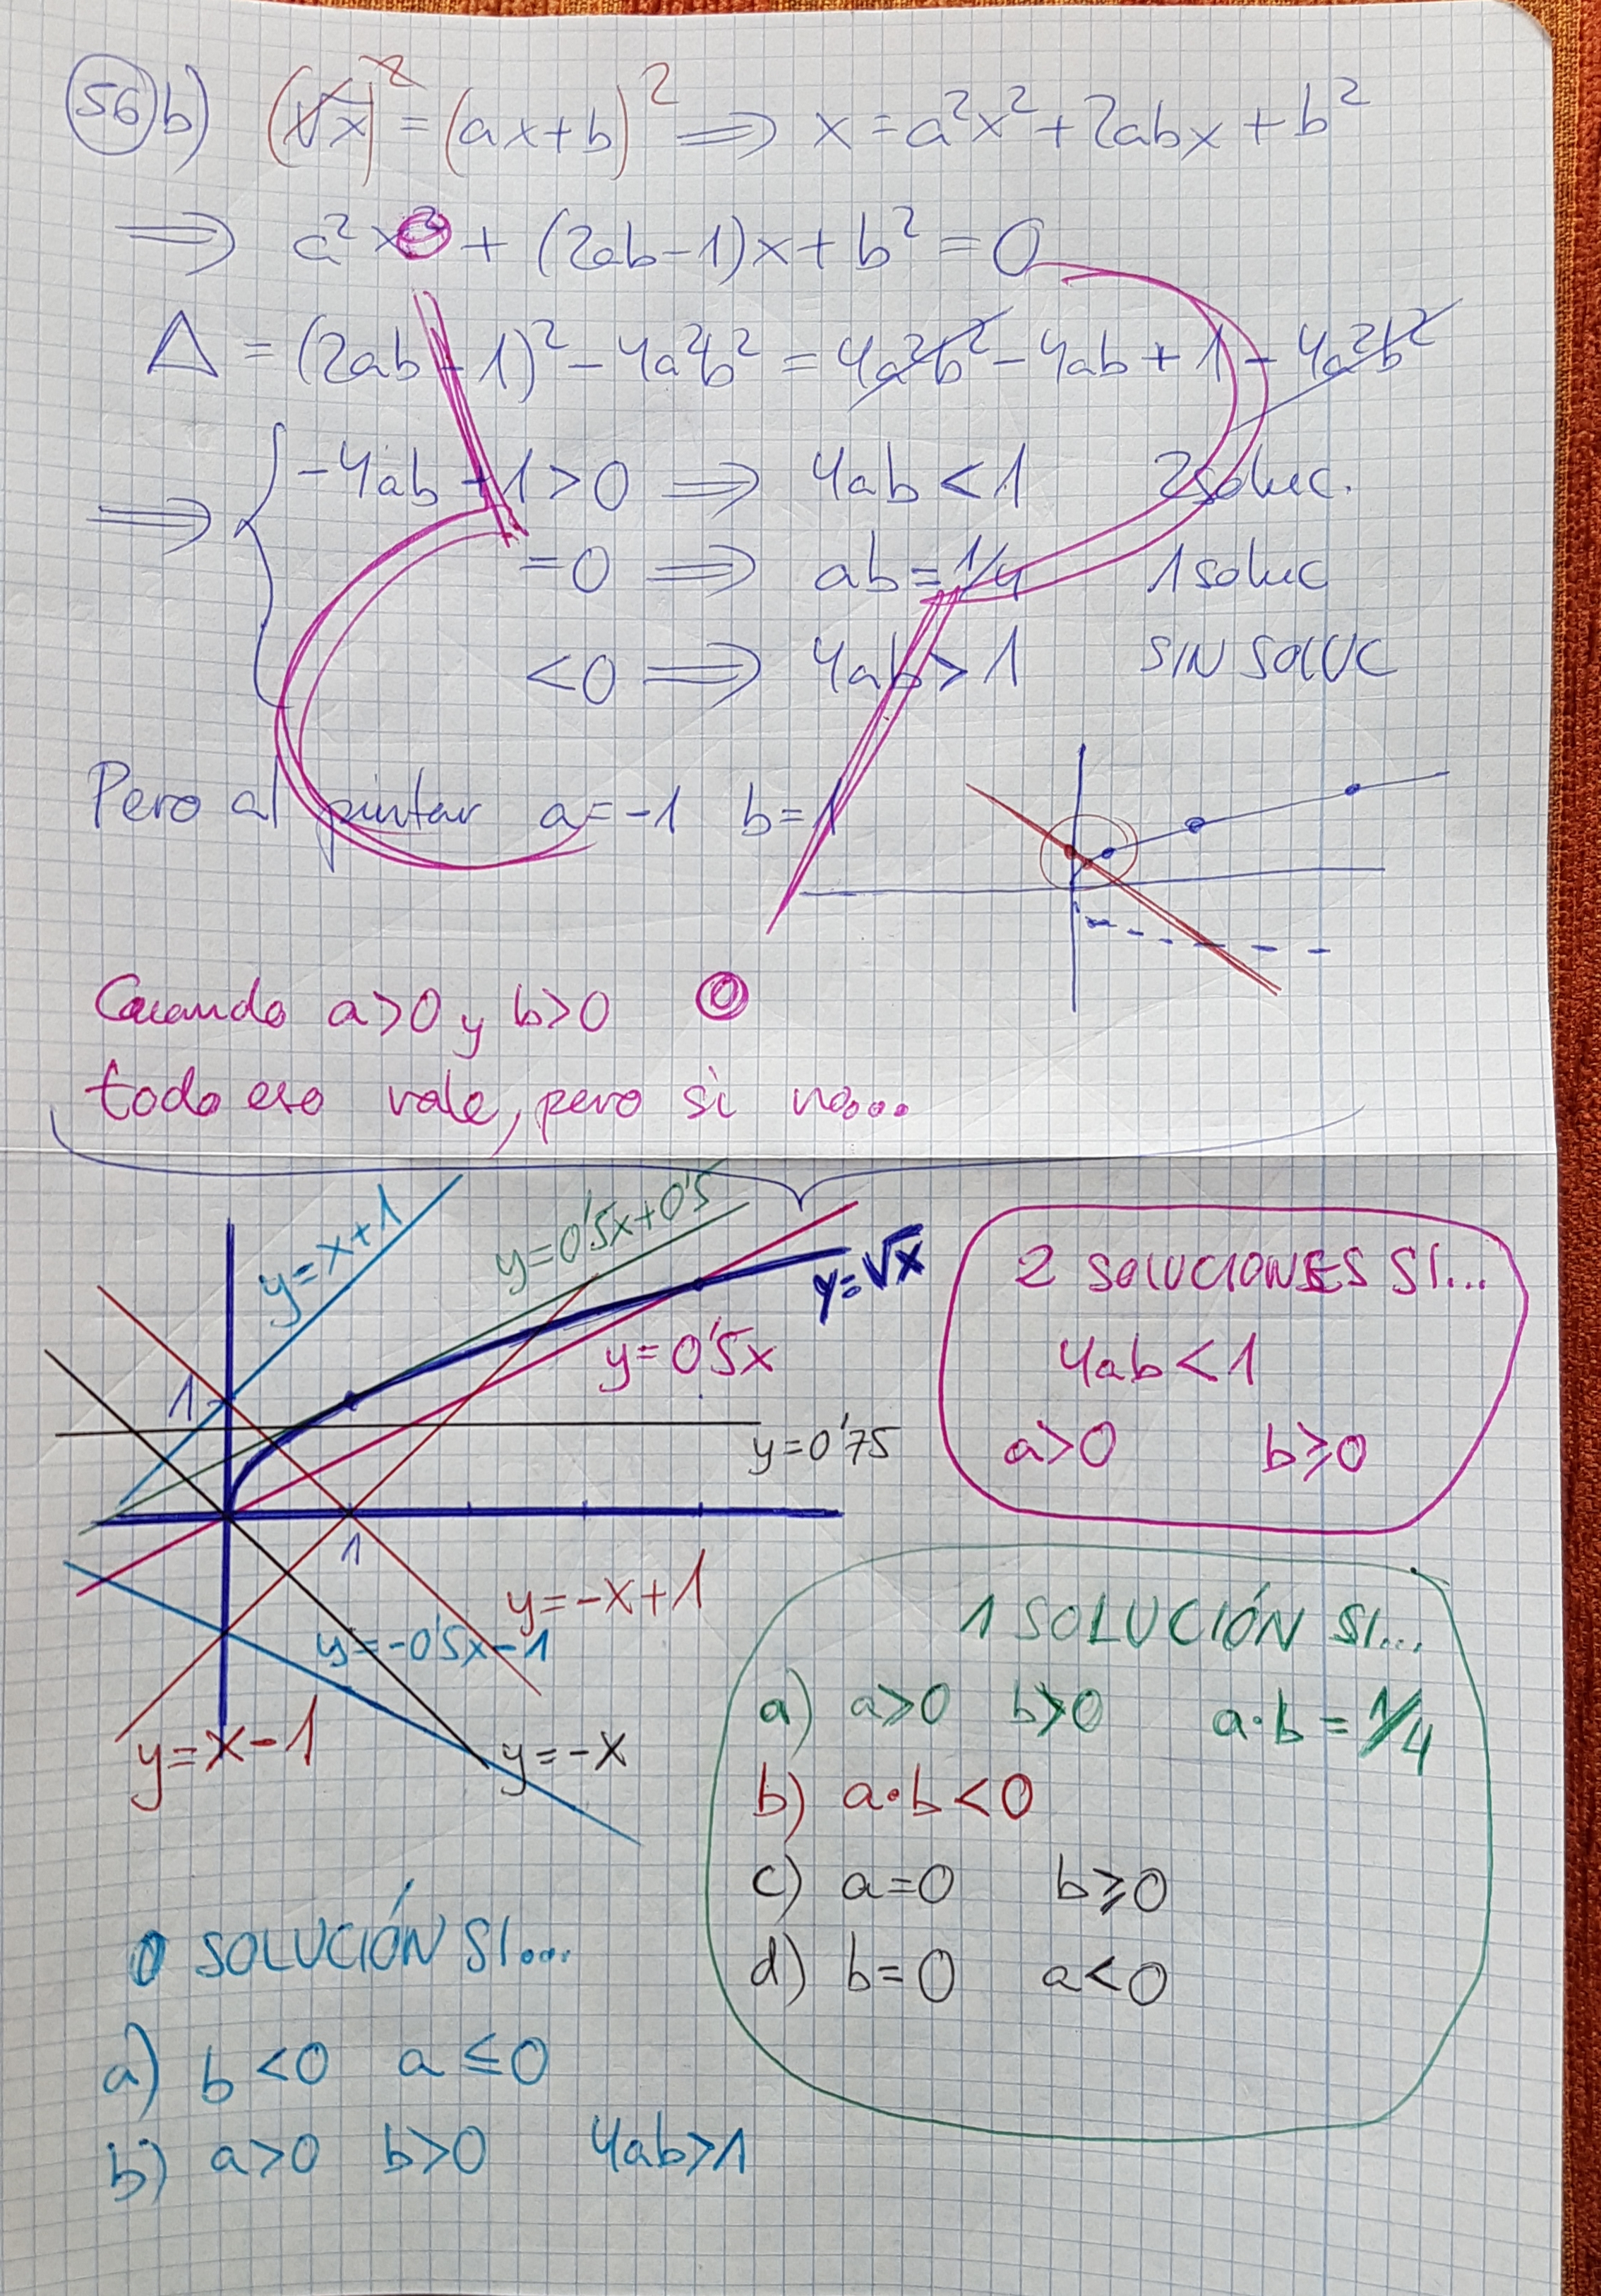 56 b) (√x)² = (ax+b)² ⟹ x = a²x² + 2abx + b²
⟹ a²x² + (2ab-1)x + b² = 0
Δ = (2ab-1)² - 4a²b² = 4a²b² - 4ab + 1 - 4a²b²
⟹ { -4ab + 1 > 0 ⟹ 4ab < 1 2 soluc.
= 0 ⟹ ab = 1/4 1 soluc
< 0 ⟹ 4ab > 1 SIN SOLUC
Pero al pintar a = -1 b = 1
Cuando a>0 y b>0
todo eso vale, pero si no...
y=x+1
y=0'5x+0'5
y=√x
y=0'5x
1
y=0'75
1
y=-x+1
y=-0'5x-1
y=x-1
y=-x
2 SOLUCIONES SI...
4ab < 1
a>0 b≥0
1 SOLUCIÓN SI...
a) a>0 b>0 a·b = 1/4
b) a·b < 0
c) a=0 b≥0
d) b=0 a<0
0 SOLUCIÓN SI...
a) b<0 a≤0
b) a>0 b>0 4ab>1